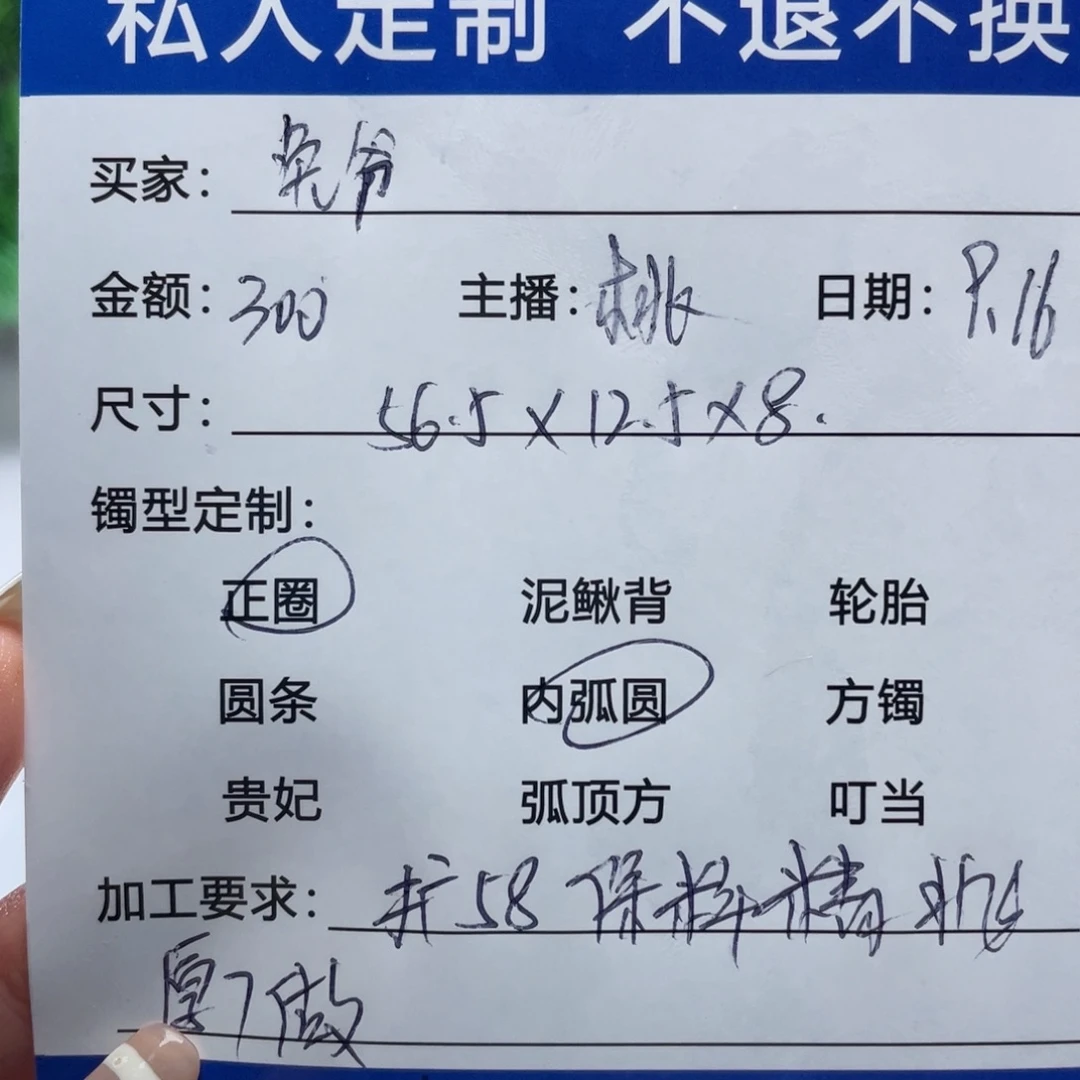 私人定制 不退不换
买家：爷
金额：300 主播：桃 日期：8.16
尺寸：56.5×12.5×8.
镯型定制：
正圈 泥鳅背 轮胎
圆条 内弧圆 方镯
贵妃 弧顶方 叮当
加工要求：扩58 保种精
厚7做